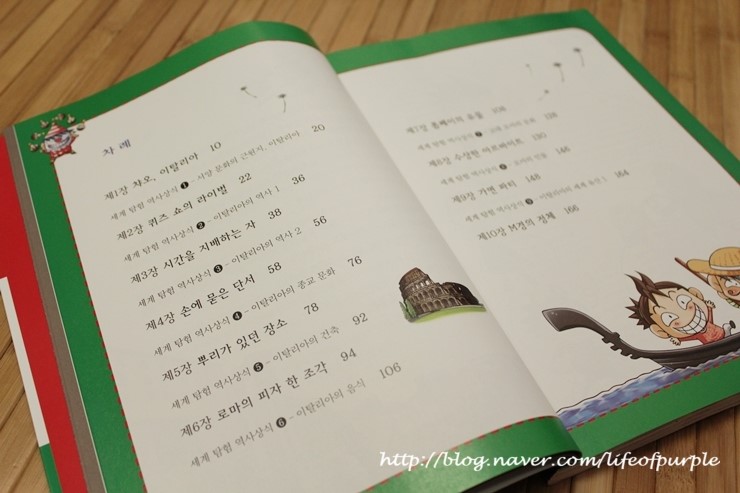 차례
제1장 차오, 이탈리아 10
세계 탐험 역사상식 ❶ - 서양 문화의 근원지, 이탈리아 20
제2장 퀴즈 쇼의 라이벌 22
세계 탐험 역사상식 ❷ - 이탈리아의 역사 1 36
제3장 시간을 지배하는 자 38
세계 탐험 역사상식 ❸ - 이탈리아의 역사 2 56
제4장 손에 묻은 단서 58
세계 탐험 역사상식 ❹ - 이탈리아의 종교 문화 76
제5장 뿌리가 있던 장소 78
세계 탐험 역사상식 ❺ - 이탈리아의 건축 92
제6장 로마의 피자 한 조각 94
세계 탐험 역사상식 ❻ - 이탈리아의 음식 106
제7장 폼페이의 유물 108
세계 탐험 역사상식 ❼ 128
제8장 수상한 아르바이트 130
세계 탐험 역사상식 146
제9장 가면 파티 148
세계 탐험 역사상식 ❾ 164
제10장 M경의 정체 166
http://blog.naver.com/lifeofpurple